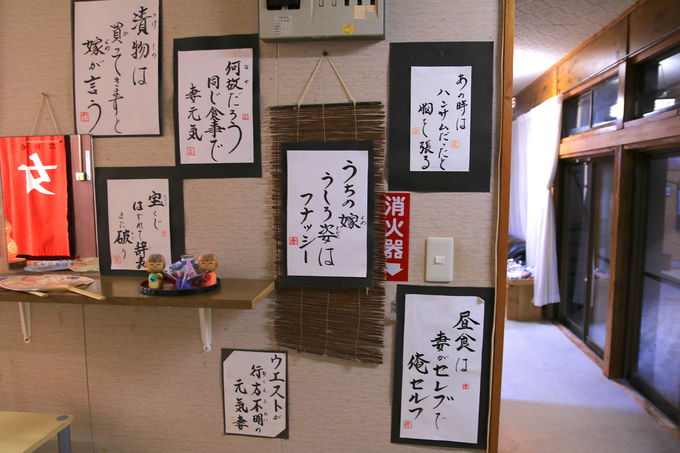 漬物は
買ってきますと
嫁が言う
何故だろう
同じ食事で
妻元気
宝くじ
はずれて辞表
また破り
うちの嫁
うしろ姿は
フナッシー
あの時は
ハンサムだったと
胸を張る
消火器
ウエストが
行方不明の
元気妻
昼食は
妻がセレブで
俺セルフ